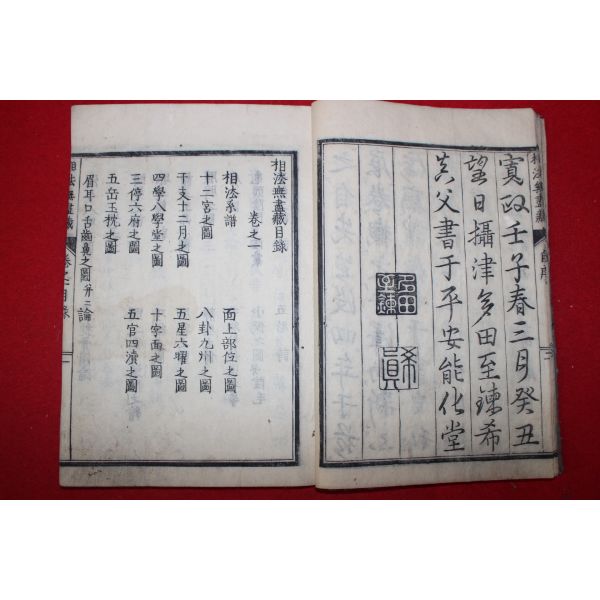 寛政壬子春三月癸丑
望日攝津多田至錬希
真父書于平安能化堂
多田至錬
希眞
相法無盡藏
相法無盡藏目録
卷之一
相法系譜 面上部位之圖
十二宮之圖 八卦九州之圖
干支十二月之圖 五星六曜之圖
四學八學堂之圖 十字面之圖
三停六府之圖 五官四瀆之圖
五岳玉枕之圖
眉耳口舌齒之圖并ニ論
相法無盡藏 卷之一目録 一